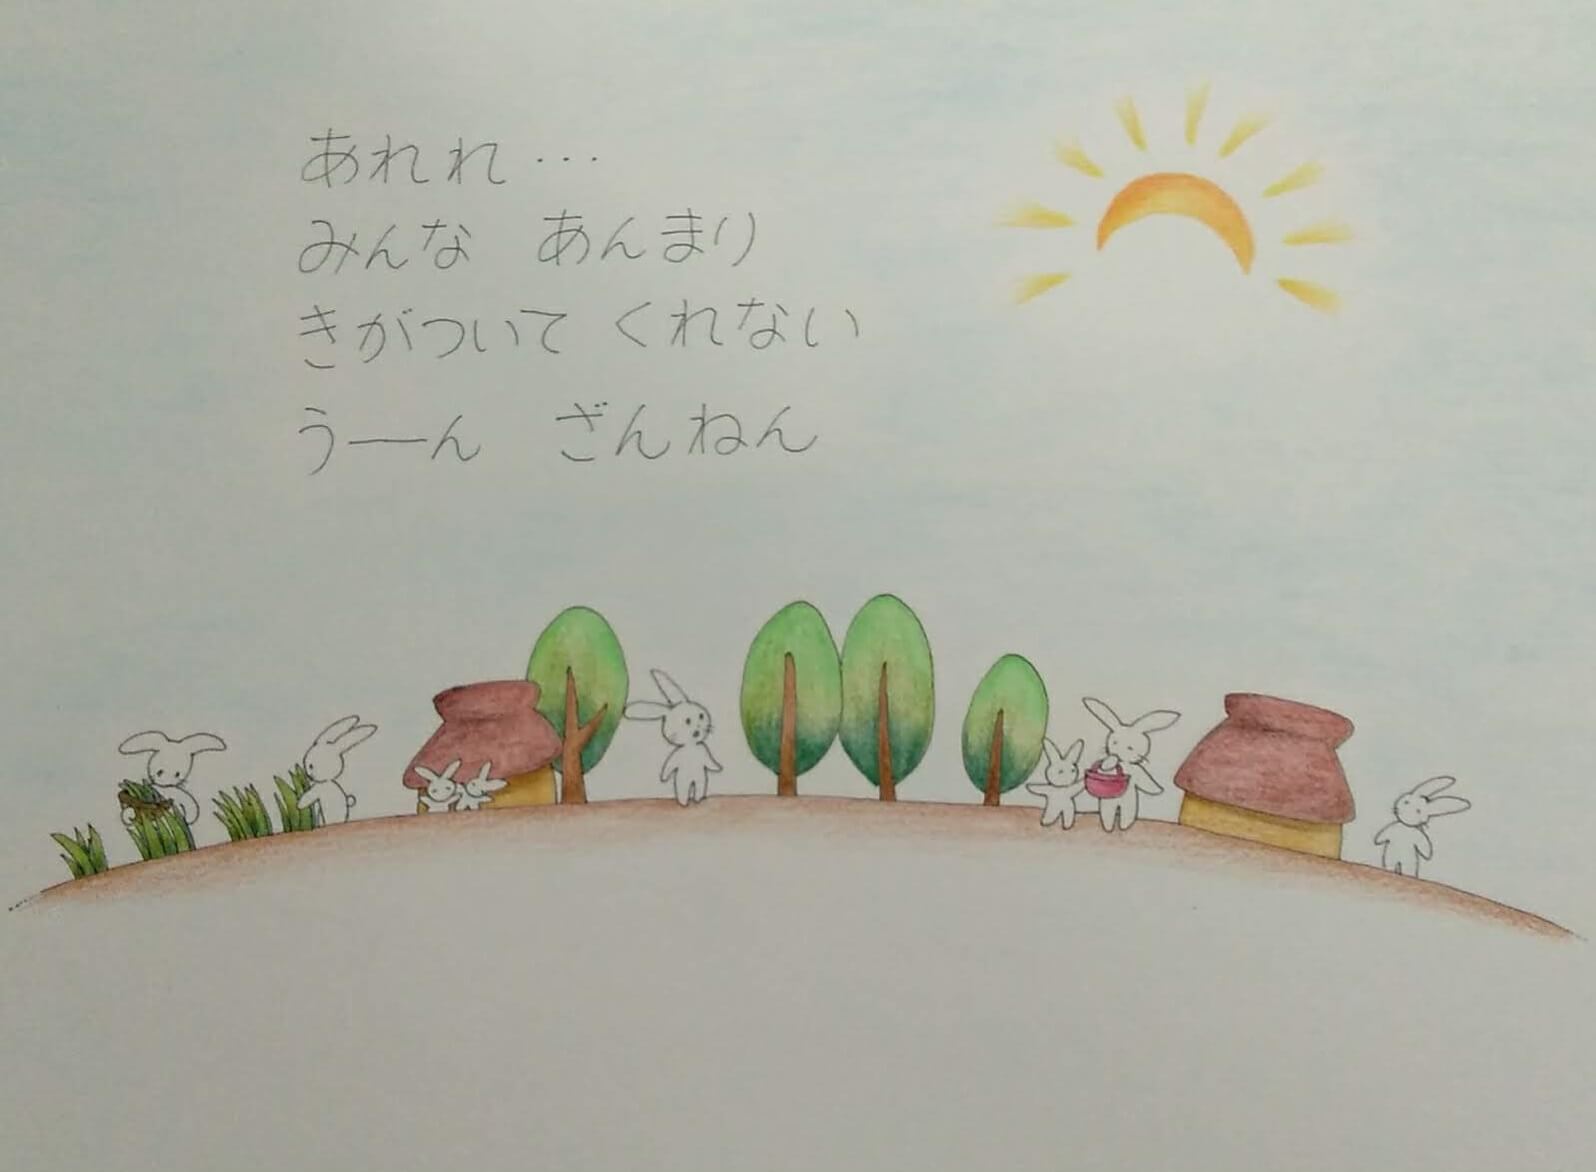 あれれ…
みんな　あんまり
きがついて　くれない
うーん　ざんねん